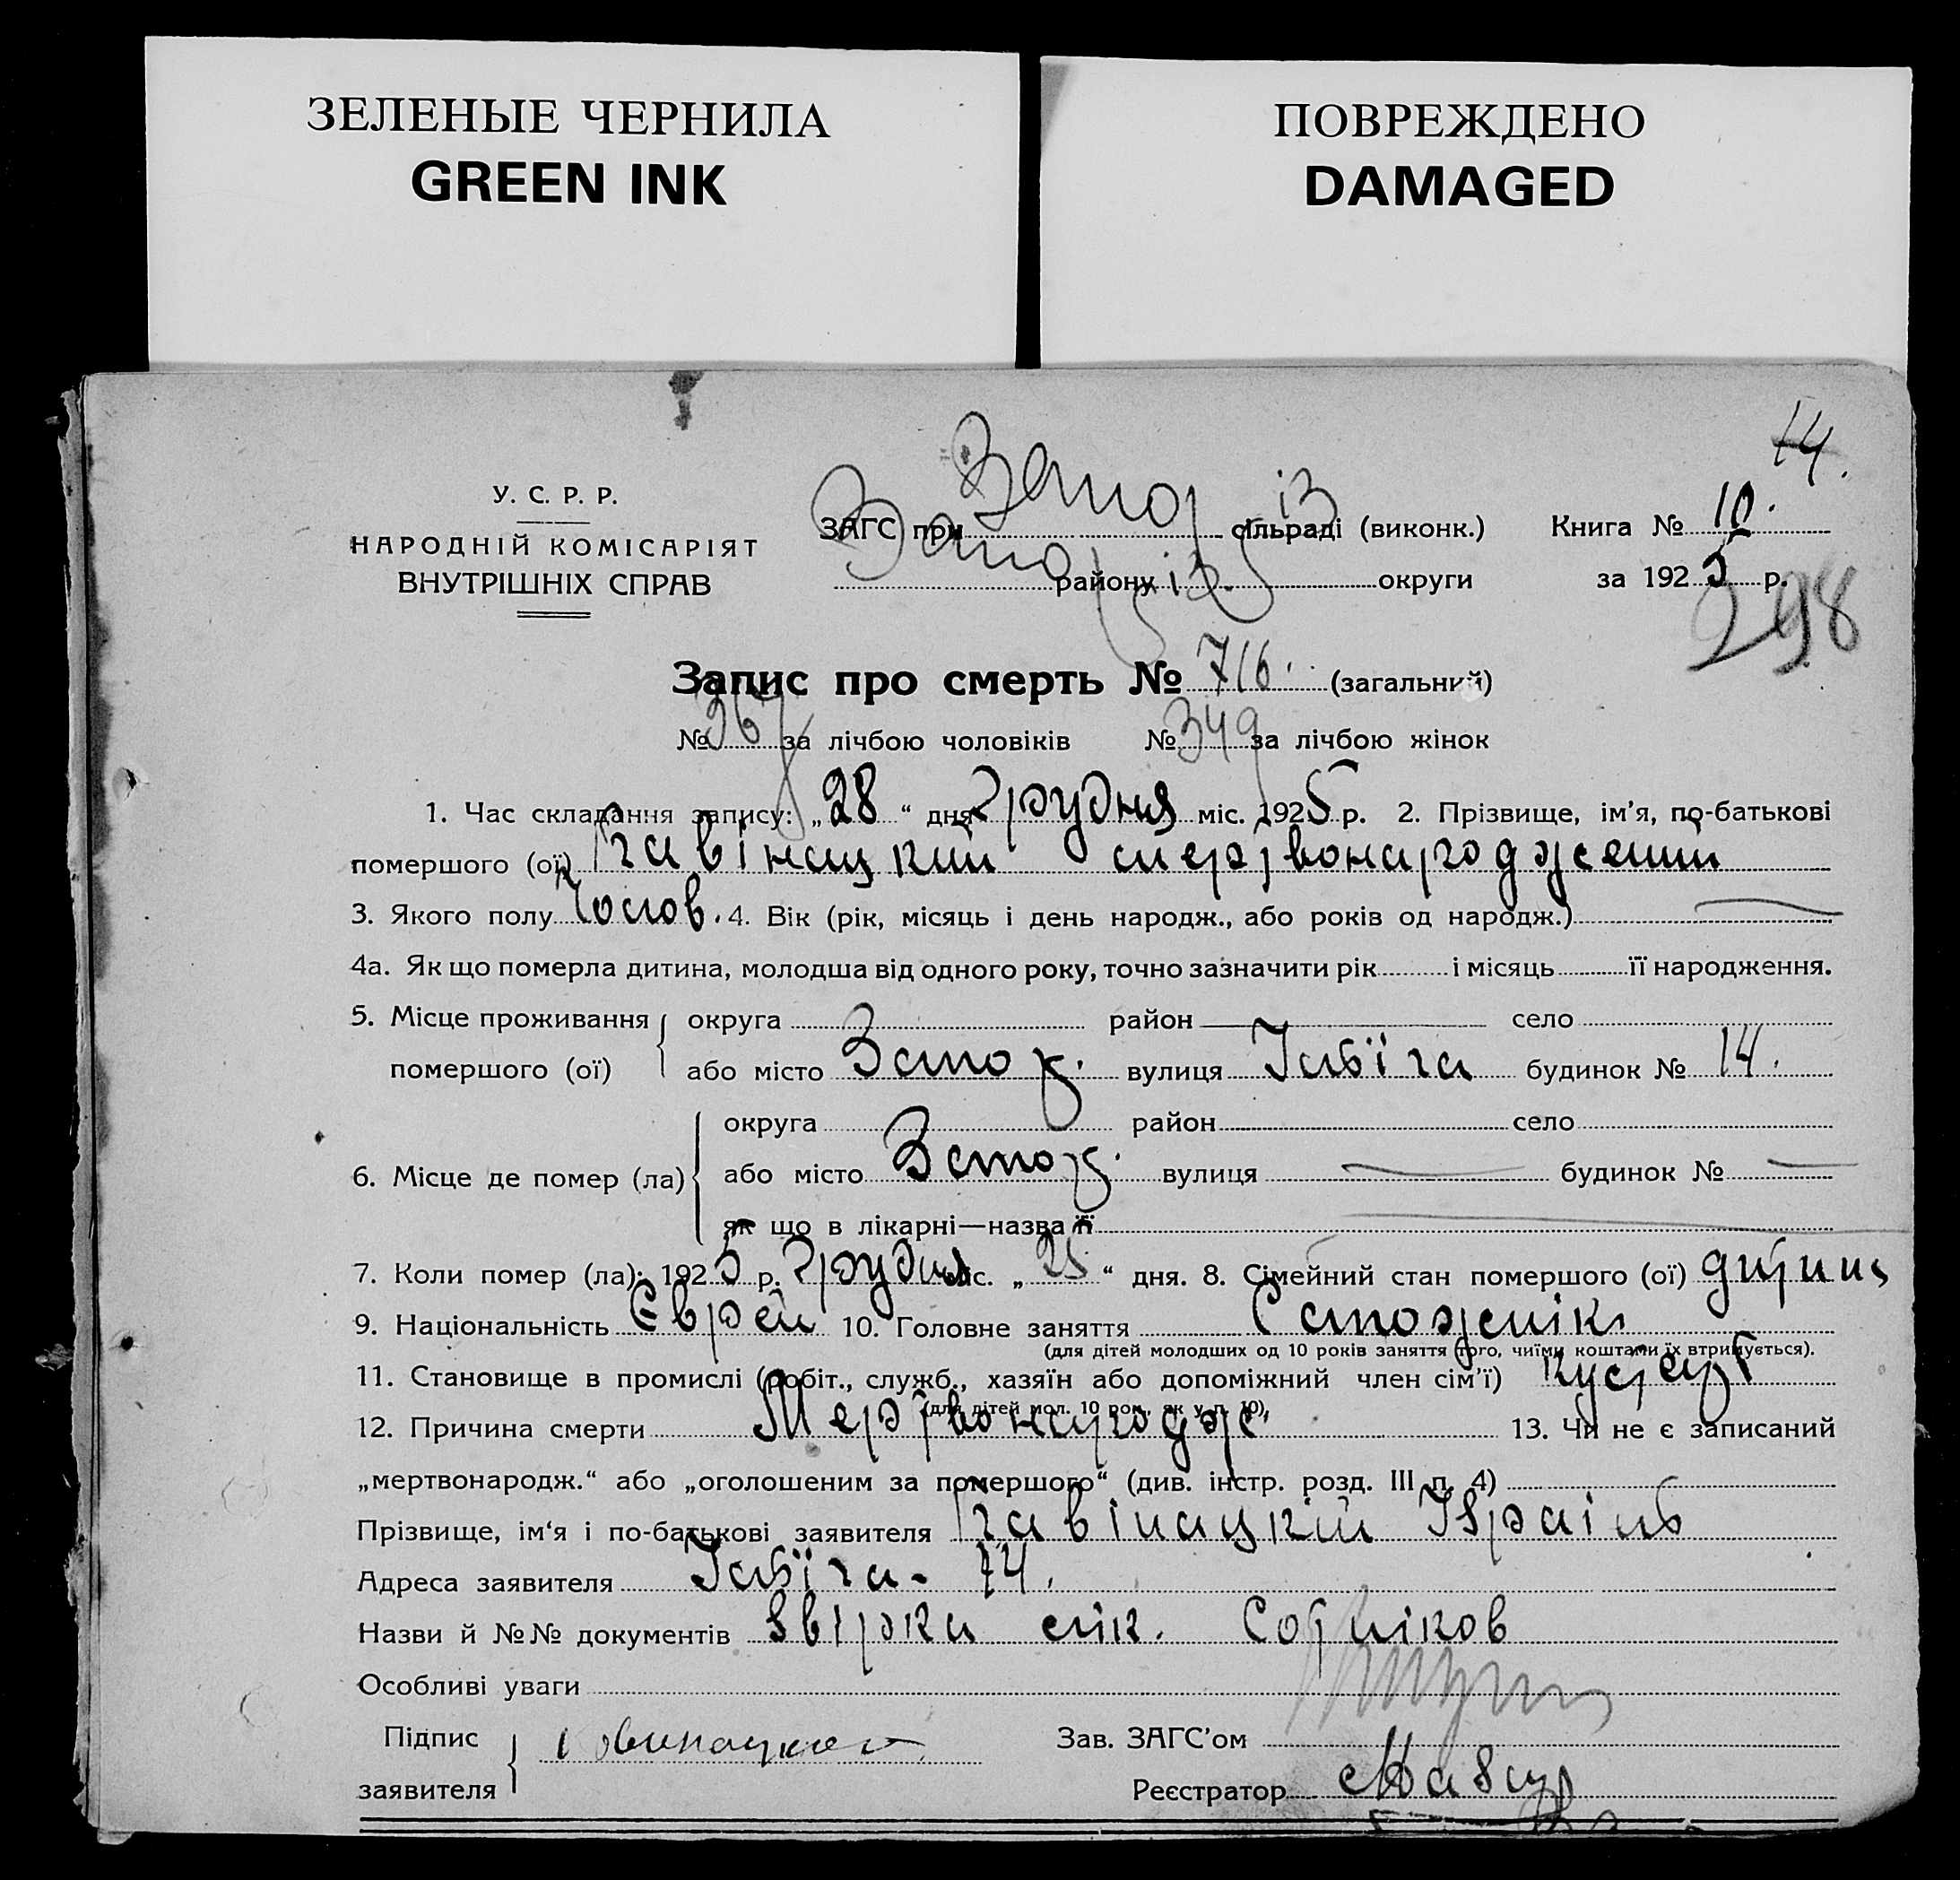 ЗЕЛЕНЫЕ ЧЕРНИЛА
GREEN INK
ПОВРЕЖДЕНО
DAMAGED
14.
У. С. Р. Р.
НАРОДНІЙ КОМІСАРІЯТ
ВНУТРІШНІХ СПРАВ
ЗАГС при Запоріз сільраді (виконк.)
Запоріз району округи
Книга № 10.
за 1925 р.
298
Запис про смерть № 716. (загальний)
№ 367 за лічбою чоловіків № 349 за лічбою жінок
1. Час складання запису: „28“ дня Грудня міс. 1925 р. 2. Прізвище, ім’я, по-батькові
помершого (ої) мертвонароджений
3. Якого полу Чолов. 4. Вік (рік, місяць і день народж., або років од народж.)
4а. Як що померла дитина, молодша від одного року, точно зазначити рік і місяць її народження.
5. Місце проживання округа район село
помершого (ої) або місто Запор. вулиця будинок № 14.
округа район село
6. Місце де помер (ла) або місто Запор. вулиця будинок №
як що в лікарні—назва її
7. Коли помер (ла): 1925 р. Грудня міс. „25“ дня. 8. Сімейний стан помершого (ої) дитина
9. Національність Єврей 10. Головне заняття Сапожнік
(для дітей молодших од 10 років заняття того, чиїми коштами їх втримується).
11. Становище в промислі (робіт., служб., хазяїн або допоміжний член сім’ї) кустарь
(для дітей мол. 10 рок., як у п. 10).
12. Причина смерти Мертвонародж. 13. Чи не є записаний
„мертвонародж.“ або „оголошеним за помершого“ (див. інстр. розд. III п. 4)
Прізвище, ім‘я і по-батькові заявителя Ізраіль
Адреса заявителя 14.
Назви й №№ документів
Особливі уваги
Підпис
заявителя
Зав. ЗАГС’ом
Реєстратор Мазур